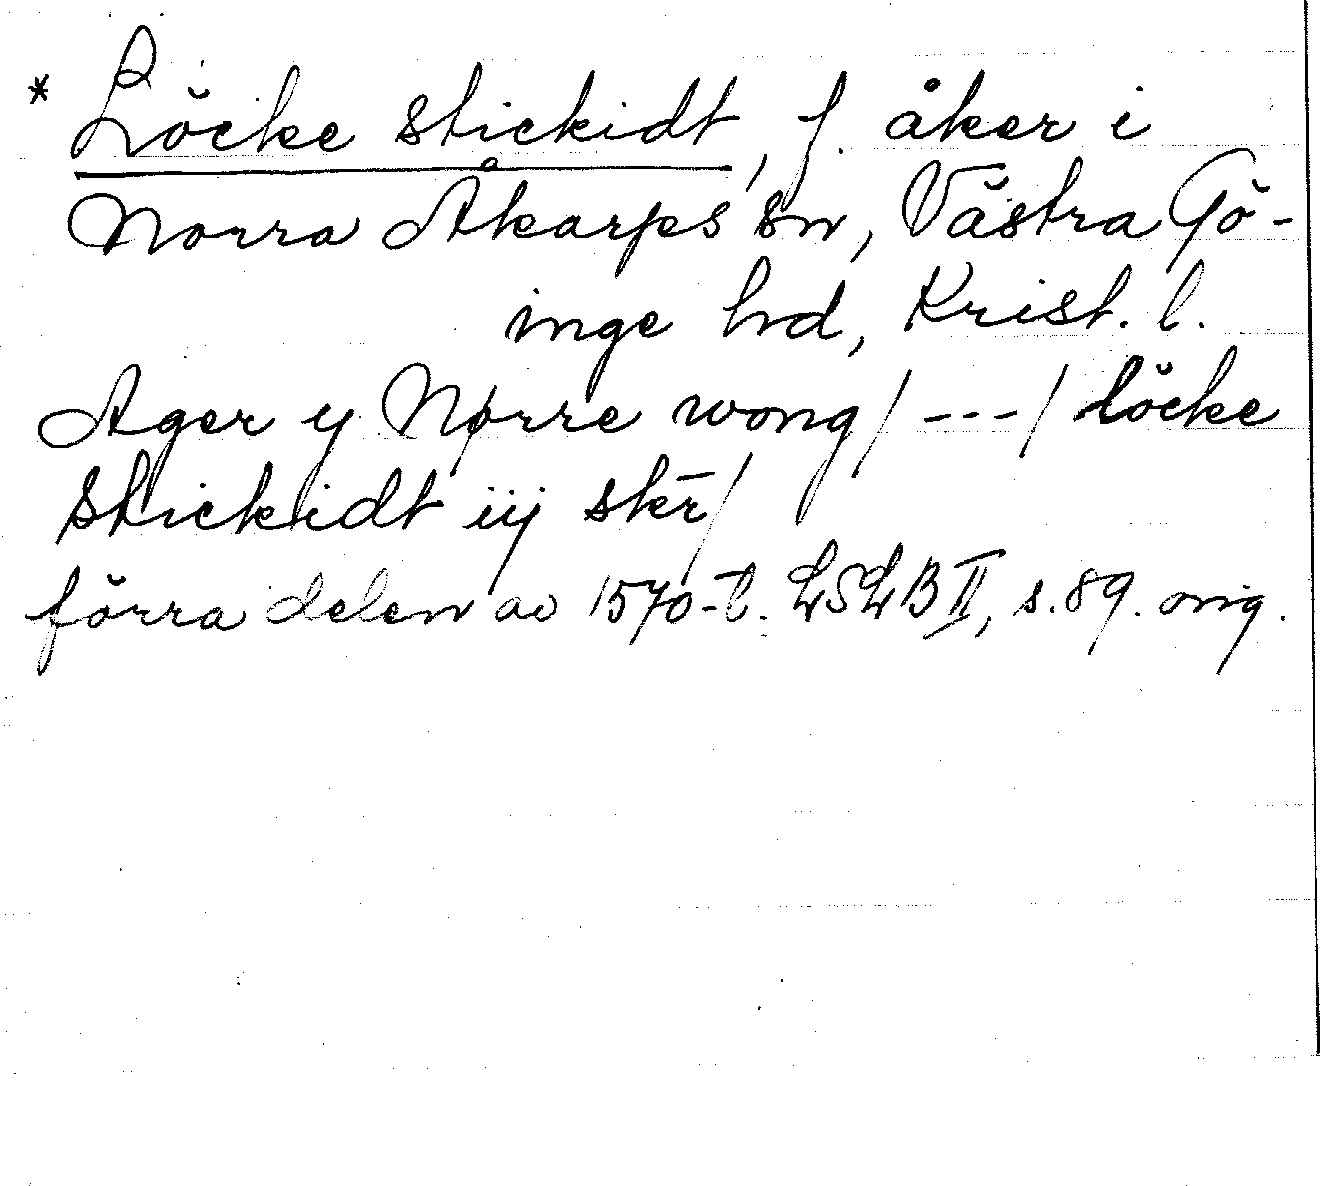 * Löcke stickidt, f. åker i
Norra Åkarps sn, Västra Gö-
inge hd, Krist. l.
Ager y Nørre wong/---/ löcke
stickidt iij skr̄/
förra delen av 1570-t. LSLB II, s. 89. orig.